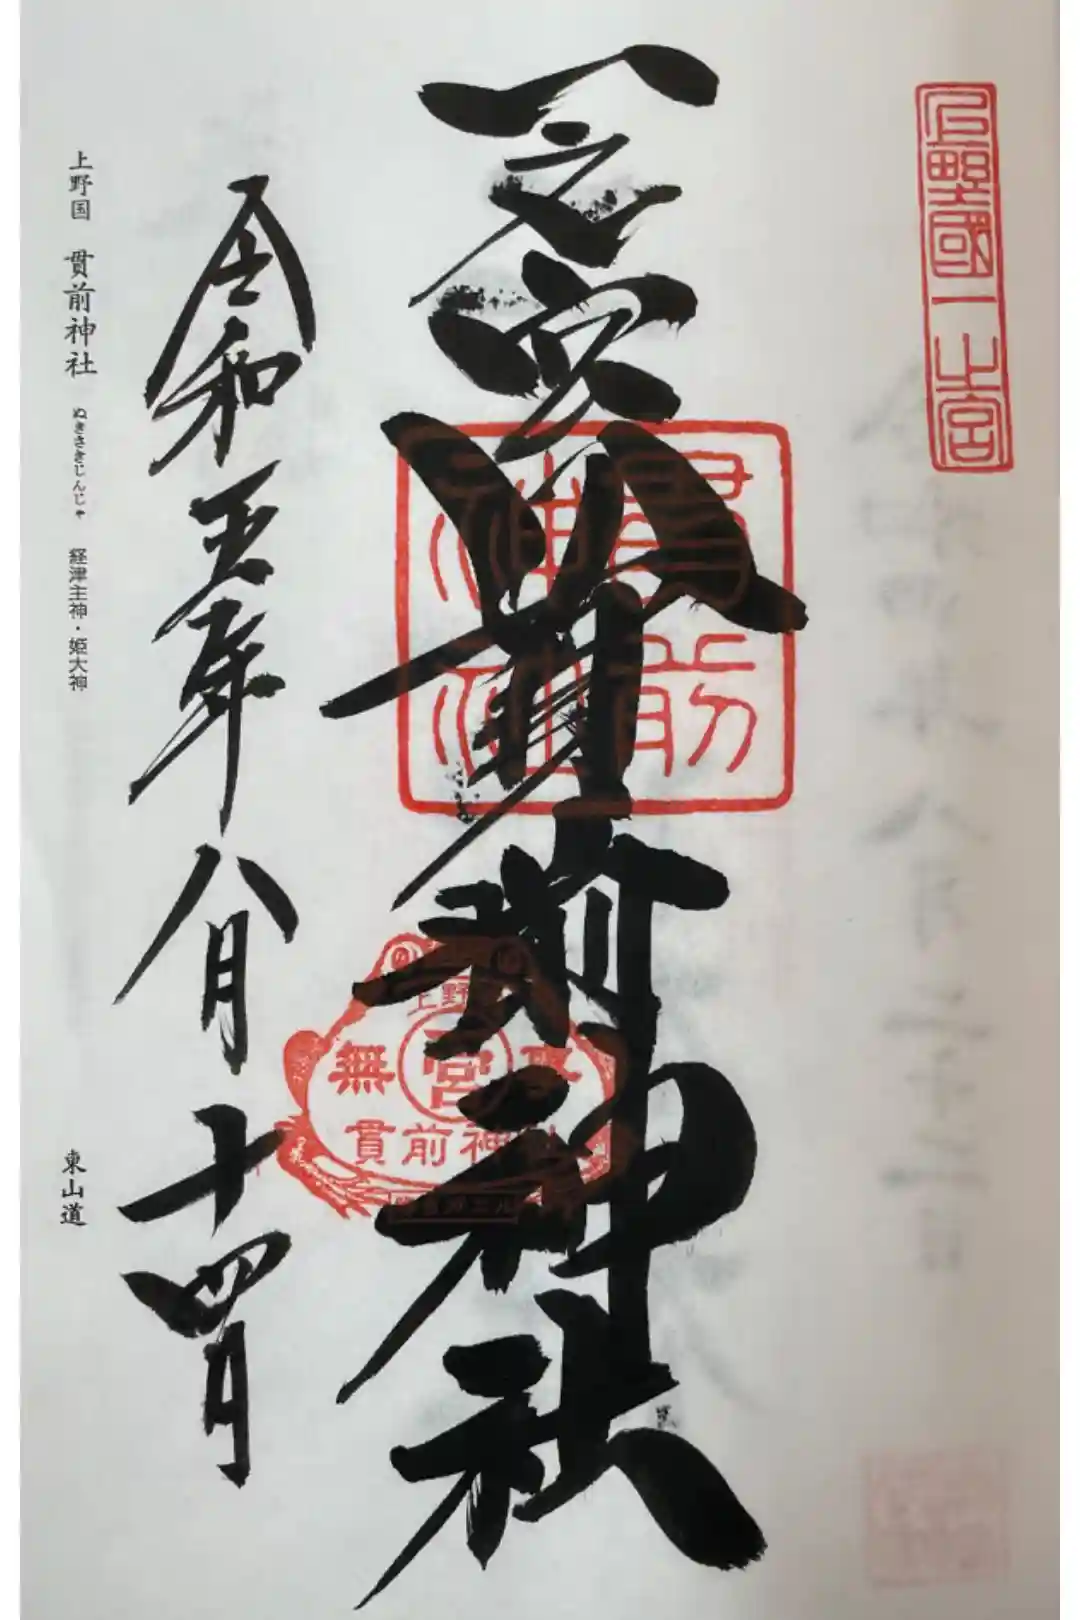 上野國一之宮
一之宮
貫前神社
貫前神社
上野
無 宮
貫前神社
令和五年八月十四日
上野国 貫前神社 ぬきさきじんじゃ 経津主神・姫大神
東山道